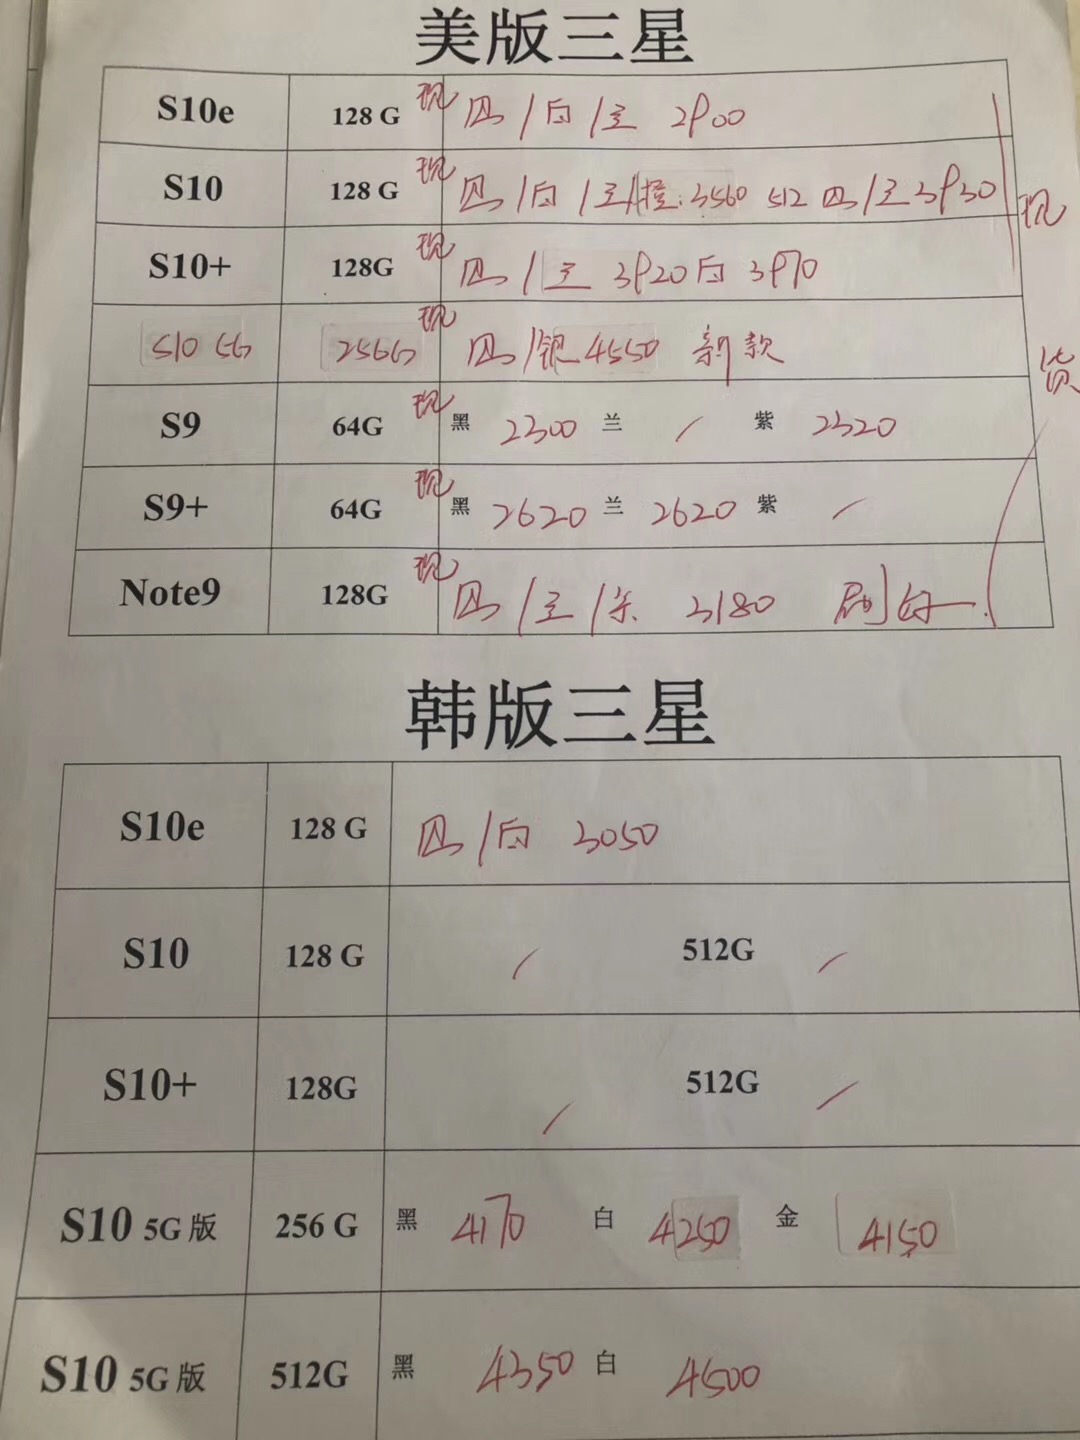 美版三星
S10e 128 G 现 /白/ 2900
S10 128 G 现 /白/ 橙:3560 512 / 3930
S10+ 128G 现 / 3920白 3970
S10 5G 256G 现 /银 4550 新款
S9 64G 现 黑 2300 兰 / 紫 2320
S9+ 64G 现 黑 2620 兰 2620 紫 /
Note9 128G 现 / / 3180
现货
韩版三星
S10e 128 G /白 3050
S10 128 G / 512G /
S10+ 128G / 512G /
S10 5G版 256 G 黑 4170 白 4250 金 4150
S10 5G版 512G 黑 4350 白 4500